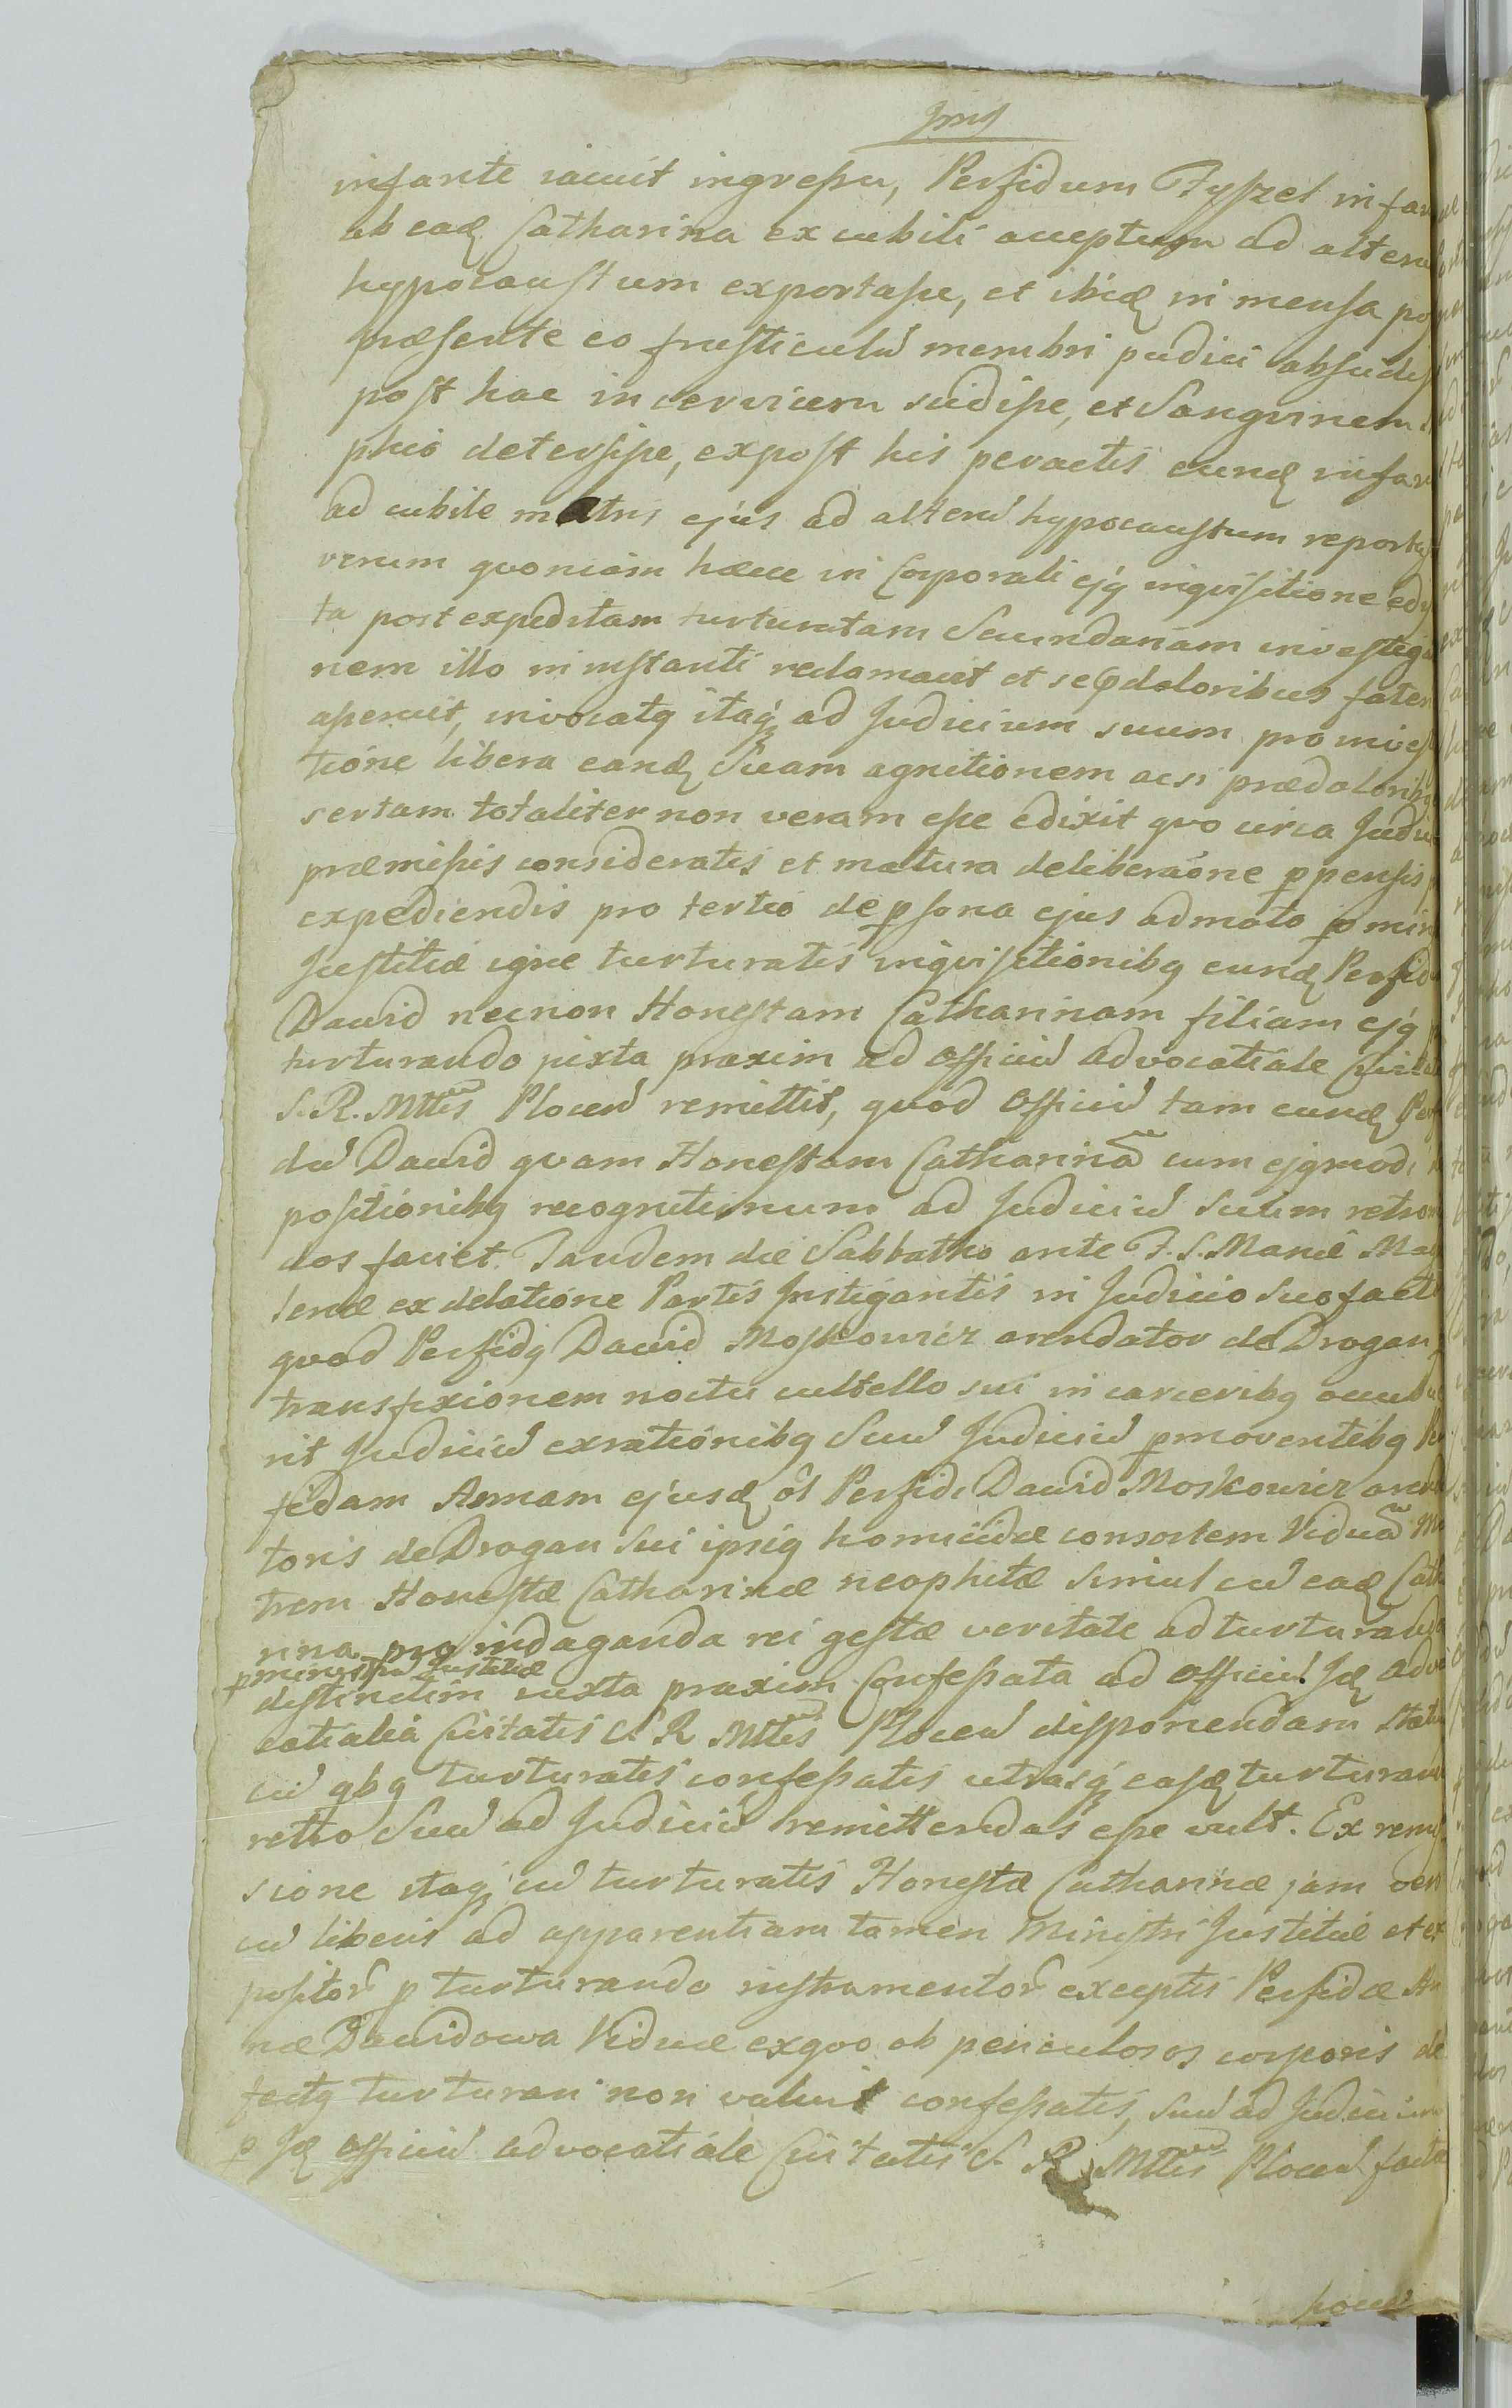 infante iacuit ingreſsu, Perfidum Fyſzel infan
ab eadꝫ Catharina ex cubili acceptum ad alteru
hypocauſtum exportaſse, et ibidꝫ in menſa po
præſente eo fruſticulū membri pudici abſcidiſ
poſt hac in cervicem scidiſse, et Sangvinem
phio deterſiſse, expoſt his peractis eundꝫ infan
ad cubile matris ejus ad alterū hypocauſtum reportaſ
verum qvoniam hæcce in Corporali ejꝰ inqviſitione edi
ta post expeditam turturatam Secundariam inveſtiga
nem illo in inſtanti reclamavit et se p doloribus fater
aſseruit, invocatꝰ itaqꝫ ad Judicium suum pro inveſ
tione libera eandꝫ Suam agnitionem acsi præ doloribꝰ
sertam totaliter non veram eſse edixit qvo circa Judic
præmiſsis consideratis et matura deliberaōne ꝑpenſis
expediendis pro tertio de ꝑſona ejus admoto ꝑ min
Juſtitiæ igne turturatis inqviſitionibꝰ eundꝫ Perfid
Dawid necnon Honeſtam Catharinam filiam ejꝰ
turturando juxta praxim ad Officiū advocatiale Civitat
S. R. Mttis Plocen̄ remittit, quod Officiū tam eundꝫ Perf
dū Dawid qvam Honeſtam Catharinā cum ejꝰmodi
poſitionibꝰ recognitionum ad Judiciū Suum retro
dos faciet. Tandem die Sabbatho ante F. S. Mariæ Mag
lenæ ex delatione Partis Inſtigantis in Judicio Suo facta
qvod Perfidꝰ Dawid Moſkowicz arendator de Drogan
transfixionem noctu cultello sui in carceribꝰ occubu
rit Judiciū ex rationibꝰ Suū Judiciū ꝑmoventibꝰ Per
fidam Annam ejusdꝫ ol Perfidi Dawid Moskowicz arenda
toris de Drogan sui ipsiꝰ homicidæ consortem Viduā Ma
trem Honeſtæ Catharinæ neophitæ simul cū eadꝫ Catha
rina pro indaganda rei geſtæ veritate ad turturanda
ꝑ miniſtrū Juſtitiæ
diſtinctim iuxta praxim Confeſsata ad Officiū Idꝫ Advo
catialia Civitatis S R Mttis Plocen̄ diſponendam ſtatu
cū qbꝰ turturatis confeſsatis utrasqꝫ easdꝫ turturan
retro Suū ad Judiciū remittendas eſse vult. Ex remiſ
sione itaqꝫ cū turturatis Honeſtæ Catharinæ jam
cū liberis ad apparentiam tamen Miniſtri Juſtitiæ et ex
poſitor̄ ꝑ turturando inſtrumentor̄ exceptis Perfidæ An
næ Dawidowa Viduæ ex qvo ob periculosos corporis de
fectꝰ turturari non valuit confeſsatis, Suū ad Judicium
ꝑ Idꝫ Officiū advocatiale Civitatis S. R Mttis Plocen̄ facta